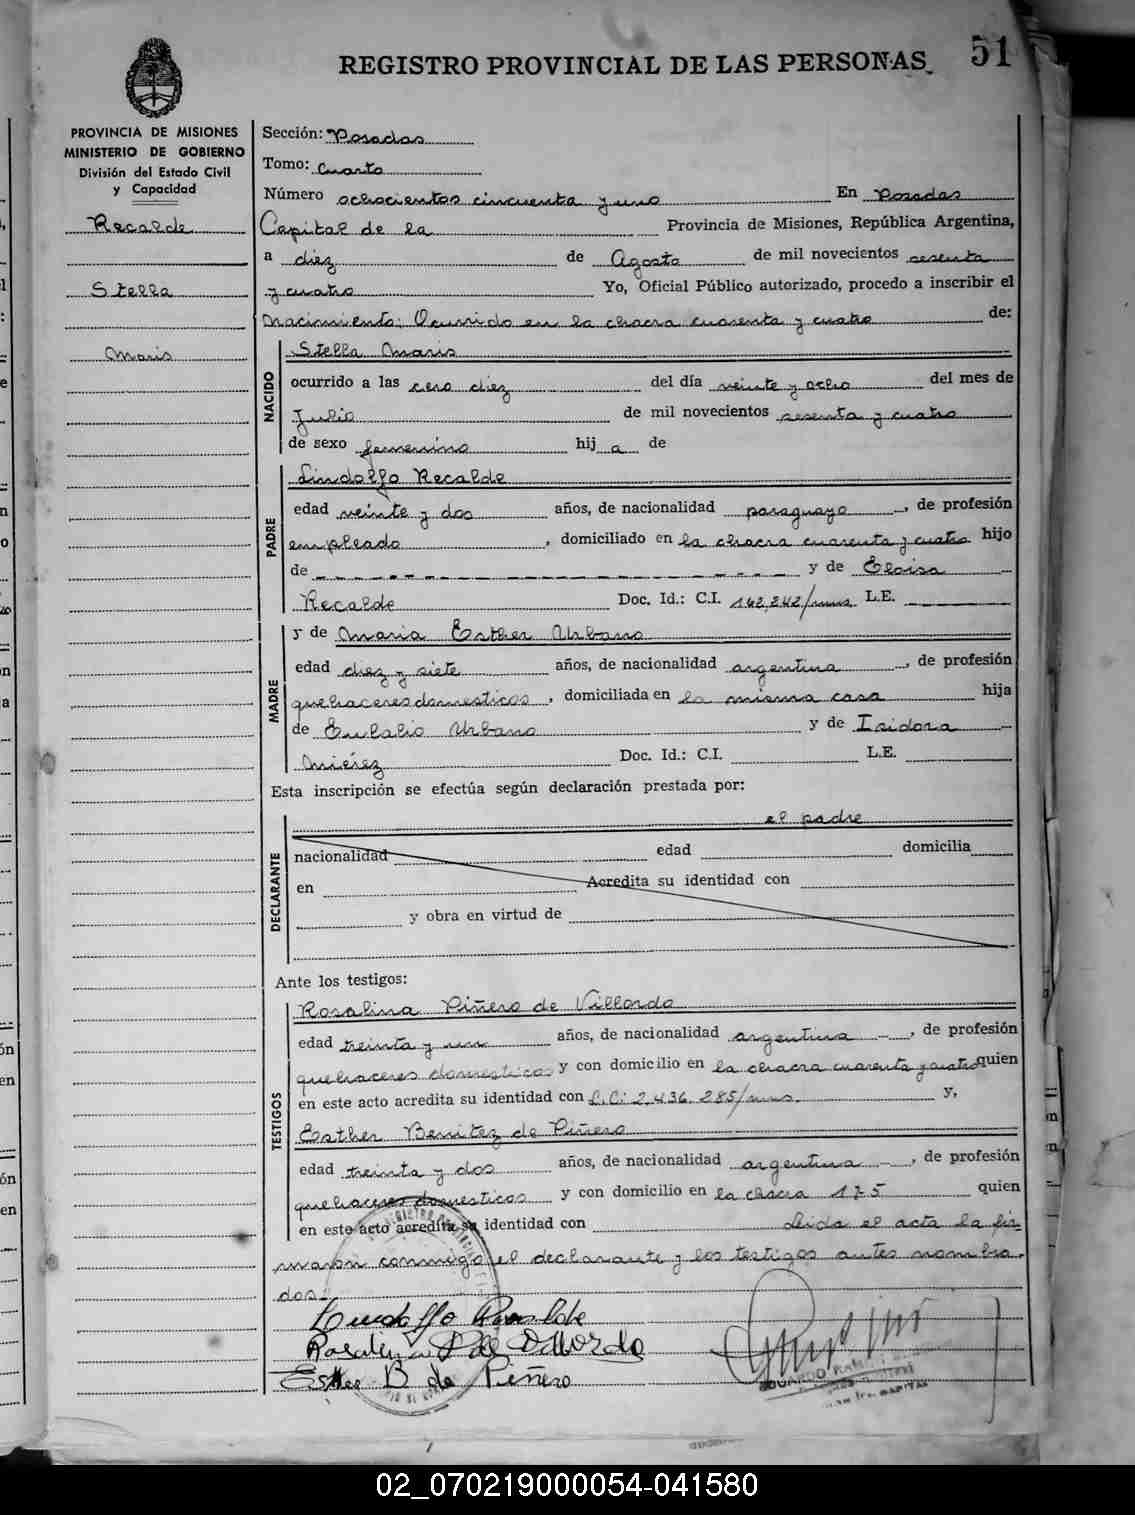 REGISTRO PROVINCIAL DE LAS PERSONAS
51
PROVINCIA DE MISIONES
MINISTERIO DE GOBIERNO
División del Estado Civil
y Capacidad
Recalde
Stella
Maris
Sección: Posadas
Tomo: Cuarto
Número ochocientos cincuenta y uno En Posadas
Capital de la Provincia de Misiones, República Argentina,
a diez de Agosto de mil novecientos sesenta
y cuatro Yo, Oficial Público autorizado, procedo a inscribir el
Nacimiento: Ocurrido en la chacra cuarenta y cuatro de:
NACIDO
Stella Maris
ocurrido a las cero diez del día veinte y ocho del mes de
Julio de mil novecientos sesenta y cuatro
de sexo femenino hij a de
PADRE
Lindolfo Recalde
edad veinte y dos años, de nacionalidad paraguayo, de profesión
empleado, domiciliado en la chacra cuarenta y cuatro hijo
de y de Eloisa
Recalde Doc. Id.: C.I. 142.242/mnes L.E.
MADRE
y de Maria Esther Urbano
edad diez y siete años, de nacionalidad argentina, de profesión
quehaceres domesticos, domiciliada en la misma casa hija
de Eulalio Urbano y de Isidora
Mierez Doc. Id.: C.I. L.E.
Esta inscripción se efectúa según declaración prestada por:
DECLARANTE
el padre
nacionalidad edad domicilia
en Acredita su identidad con
y obra en virtud de
Ante los testigos:
TESTIGOS
Rosalina Piñero de Villordo
edad treinta y un años, de nacionalidad argentina, de profesión
quehaceres domesticos y con domicilio en la chacra cuarenta y cuatro quien
en este acto acredita su identidad con L.C: 2.436.285/mns. y,
Esther Benitez de Piñero
edad treinta y dos años, de nacionalidad argentina, de profesión
quehaceres domesticos y con domicilio en la chacra 175 quien
en este acto acredita su identidad con Leida el acta la fir-
maron conmigo el declarante y los testigos antes nombra-
dos.-
Lindolfo Recalde
Rosalina P de Villordo
Esther B de Piñero
02_070219000054-041580